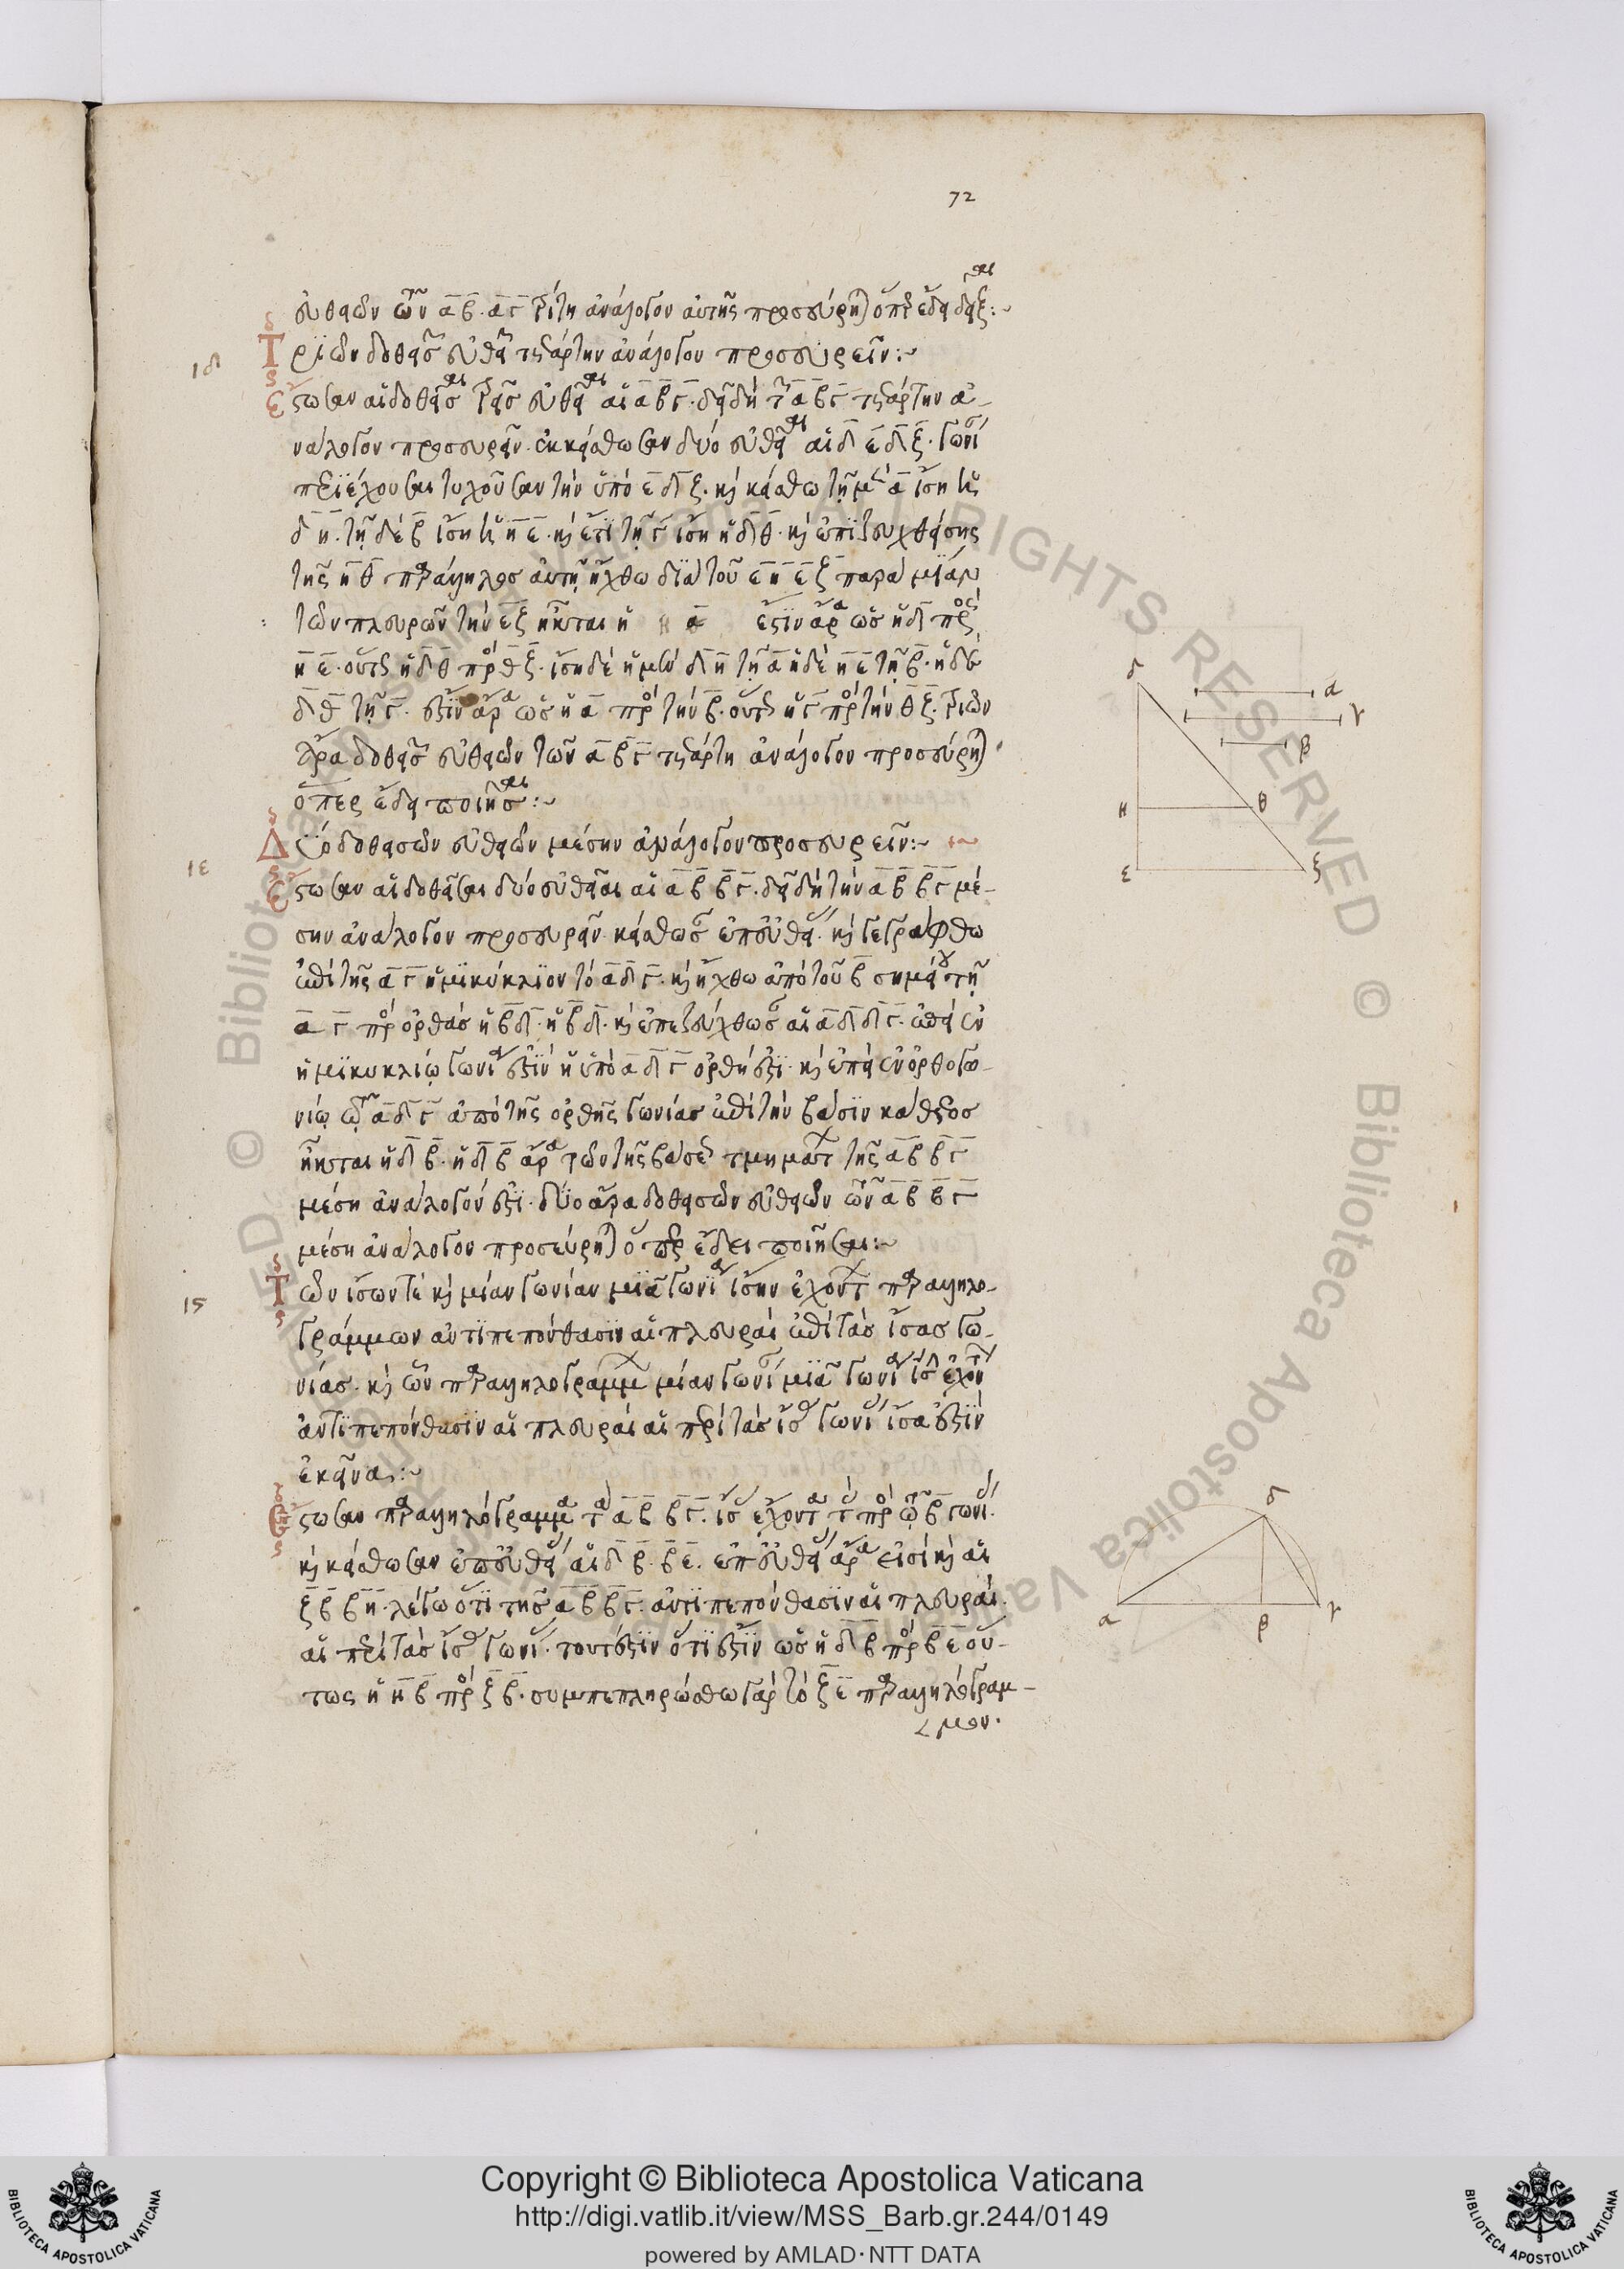 72
εὐθειῶν τῶν α β. α γ τρίτη ἀνάλογον αὐτῆς προσεύρηται ὅπερ ἔδει δεῖξαι:~
ιδ Τριῶν δοθεισῶν εὐθειῶν τετάρτην ἀνάλογον προσευρεῖν:~
Ἔστωσαν αἱ δοθεῖσαι τρεῖς εὐθεῖαι αἱ α β γ. δεῖ δὴ τῶν α β γ τετάρτην ἀ-
νάλογον προσευρεῖν. ἐκκείσθωσαν δύο εὐθεῖαι αἱ δ ε δ ξ. γωνίαν
περιέχουσαι τυχοῦσαν τὴν ὑπὸ ε δ ξ. καὶ κείσθω τῇ μὲν α ἴση ἡ
δ η. τῇ δὲ β ἴση ἡ η ε. καὶ ἔτι τῇ γ ἴση ἡ δ θ. καὶ ἐπιζευχθείσης
τῆς η θ παράλληλος αὐτῇ ἤχθω διὰ τοῦ ε η ε ξ παρὰ μίαν
τῶν πλευρῶν τὴν ε ξ ἦκται ἡ ἔστιν ἄρα ὡς ἡ δ η πρὸς
η ε. οὕτως ἡ δ θ πρὸς θ ξ. ἴση δὲ ἡ μὲν δ η τῇ α ἡ δὲ η ε τῇ β. ἡ δὲ
δ θ τῇ γ. ἔστιν ἄρα ὡς ἡ α πρὸς τὴν β. οὕτως ἡ γ πρὸς τὴν θ ξ. τριῶν
ἄρα δοθεισῶν εὐθειῶν τῶν α β γ τετάρτη ἀνάλογον προσεύρηται
ὅπερ ἔδει ποιῆσαι:~
ιε Δύο δοθεισῶν εὐθειῶν μέσην ἀνάλογον προσευρεῖν:~
Ἔστωσαν αἱ δοθεῖσαι δύο εὐθεῖαι αἱ α β β γ. δεῖ δὴ τὴν α β β γ μέ-
σην ἀνάλογον προσευρεῖν. κείσθωσαν ἐπ' εὐθείας. καὶ γεγράφθω
ἐπὶ τῆς α γ ἡμικύκλιον τὸ α δ γ. καὶ ἤχθω ἀπὸ τοῦ β σημείου τῇ
α γ πρὸς ὀρθὰς ἡ β δ. ἡ β δ. καὶ ἐπεζεύχθωσαν αἱ α δ δ γ. ἐπεὶ ἐν
ἡμικυκλίῳ γωνία ἐστὶν ἡ ὑπὸ α δ γ ὀρθή ἐστι. καὶ ἐπεὶ ἐν ὀρθογω-
νίῳ τῷ α δ γ ἀπὸ τῆς ὀρθῆς γωνίας ἐπὶ τὴν βάσιν κάθετος
ἦκται ἡ δ β. ἡ δ β ἄρα τῶν τῆς βάσεως τμημάτων τῆς α β β γ
μέση ἀνάλογόν ἐστι. δύο ἄρα δοθεισῶν εὐθειῶν τῶν α β β γ
μέση ἀνάλογον προσεύρηται ὅπερ ἔδει ποιῆσαι:~
ιϛ Τῶν ἴσων τε καὶ μίαν γωνίαν μιᾷ γωνίᾳ ἴσην ἐχόντων παραλληλο-
γράμμων ἀντιπεπόνθασιν αἱ πλευραὶ ἐπὶ τὰς ἴσας γω-
νίας. καὶ ὧν παραλληλογράμμων μίαν γωνίαν μιᾷ γωνίᾳ ἴσην ἐχόντων
ἀντιπεπόνθασιν αἱ πλευραὶ αἱ περὶ τὰς ἴσας γωνίας ἴσα ἐστὶν
ἐκεῖνα:~
Ἔστωσαν παραλληλόγραμμα τὰ α β β γ. ἴσας ἔχοντα τὰς πρὸς τῷ β γωνίας.
καὶ κείσθωσαν ἐπ' εὐθείας αἱ δ β. β ε. ἐπ' εὐθείας ἄρα εἰσὶ καὶ αἱ
ξ β β η. λέγω ὅτι τῆς α β β γ. ἀντιπεπόνθασιν αἱ πλευραὶ.
αἱ περὶ τὰς ἴσας γωνίας. τουτέστιν ὅτι ἔστιν ὡς ἡ δ β πρὸς β ε οὕ-
τως ἡ η β πρὸς ξ β. συμπεπληρώσθω γὰρ τὸ ξ ε παραλληλόγραμ-
μον.
δ α γ β η θ ε ξ
δ α β γ
Copyright © Biblioteca Apostolica Vaticana
http://digi.vatlib.it/view/MSS_Barb.gr.244/0149
powered by AMLAD·NTT DATA
BIBLIOTECA APOSTOLICA VATICANA
BIBLIOTECA APOSTOLICA VATICANA